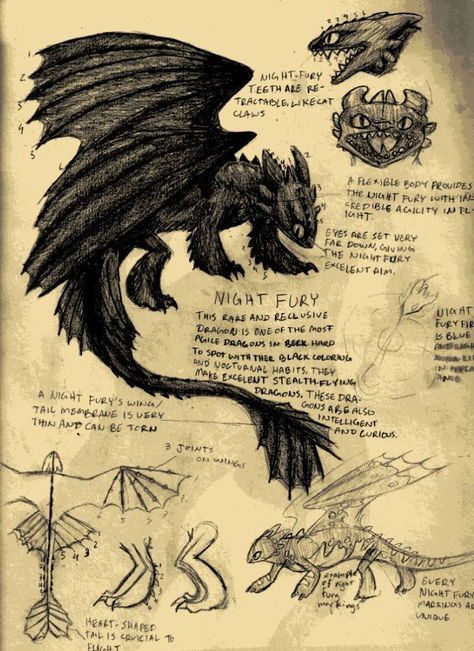 NIGHT-FURY
TEETH ARE RE-
TRACTABLE, LIKE CAT
CLAWS
A FLEXIBLE BODY PROVIDES
THE NIGHT FURY WITH IN
CREDIBLE AGILITY IN FL-
IGHT.
EYES ARE SET VERY
FAR DOWN, GIVING
THE NIGHT FURY
EXCELENT AIM.
NIGHT FURY
THIS RARE AND RECLUSIVE
DRAGON IS ONE OF THE MOST
AGILE DRAGONS IN BERK. HARD
TO SPOT WITH THER BLACK COLORING
AND NOCTURNAL HABITS, THEY
MAKE EXCELENT STEALTH-FLYING
DRAGONS. THESE DRA-
GONS ARE ALSO
INTELLIGENT
AND CURIOUS.
NIGHT
FURY FIR
IS BLUE
A NIGHT FURY'S WING/
TAIL MEMBRANE IS VERY
THIN AND CAN BE TORN
3 JOINTS
ON WINGS
HEART-SHAPED
TAIL IS CRUCIAL TO
FLIGHT
example
of night
fury
markings
EVERY
NIGHT FURY
MARKINGS A
UNIQUE